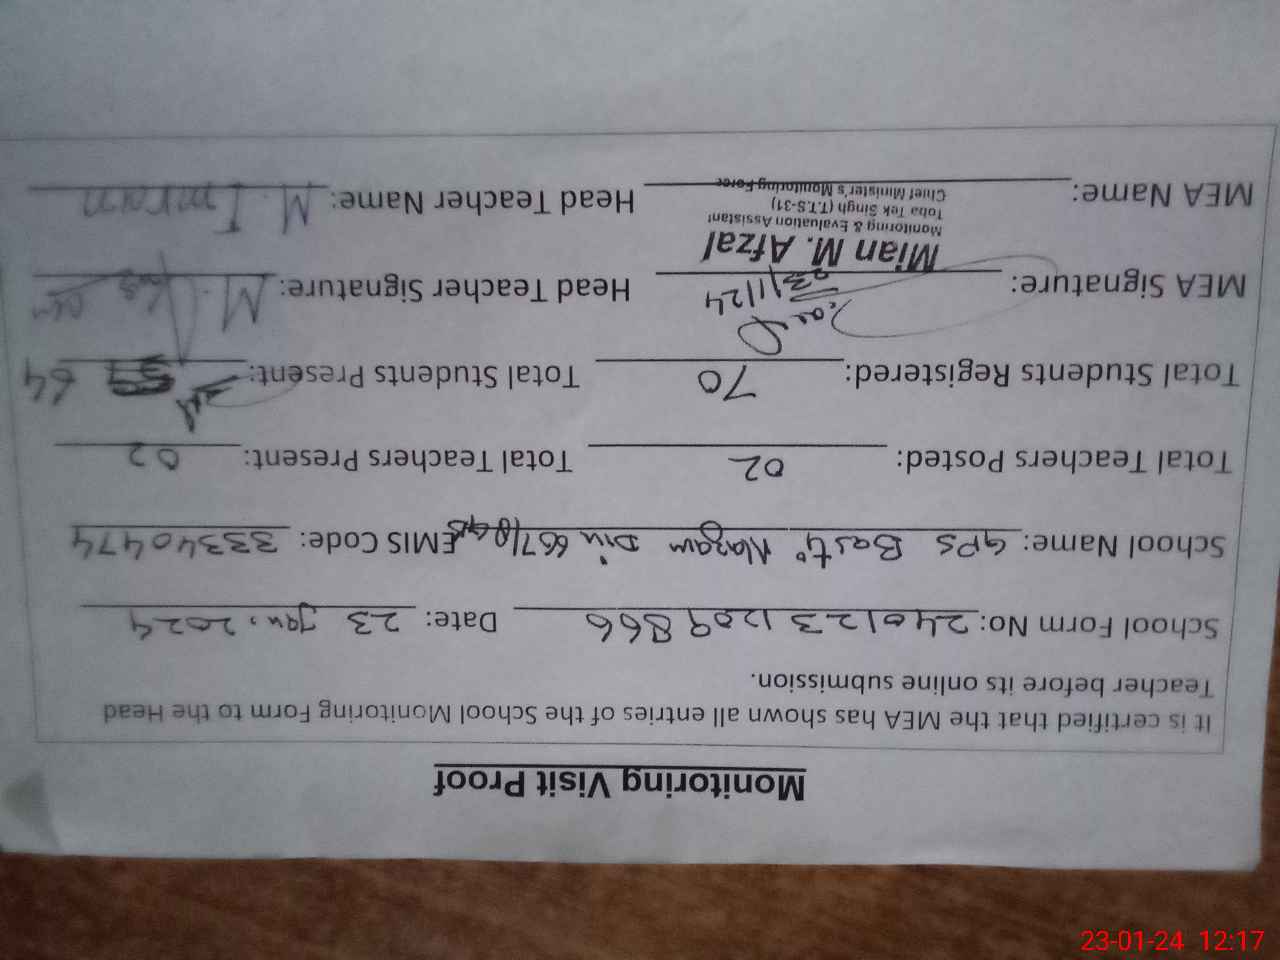 Monitoring Visit Proof
It is certified that the MEA has shown all entries of the School Monitoring Form to the Head
Teacher before its online submission.
School Form No: 240123 1209866 Date: 23 Jan, 2024
School Name: GPS Basti Nazam Din 667/8 GB EMIS Code: 33340474
Total Teachers Posted: 02 Total Teachers Present: 02
Total Students Registered: 70 Total Students Present: 64
MEA Signature: 23/1/24 Head Teacher Signature: M.
Mian M. Afzal
Monitoring & Evaluation Assistant
Toba Tek Singh (T.T.S-31)
Chief Minister's Monitoring Force
MEA Name: Head Teacher Name: M. Imran
23-01-24 12:17